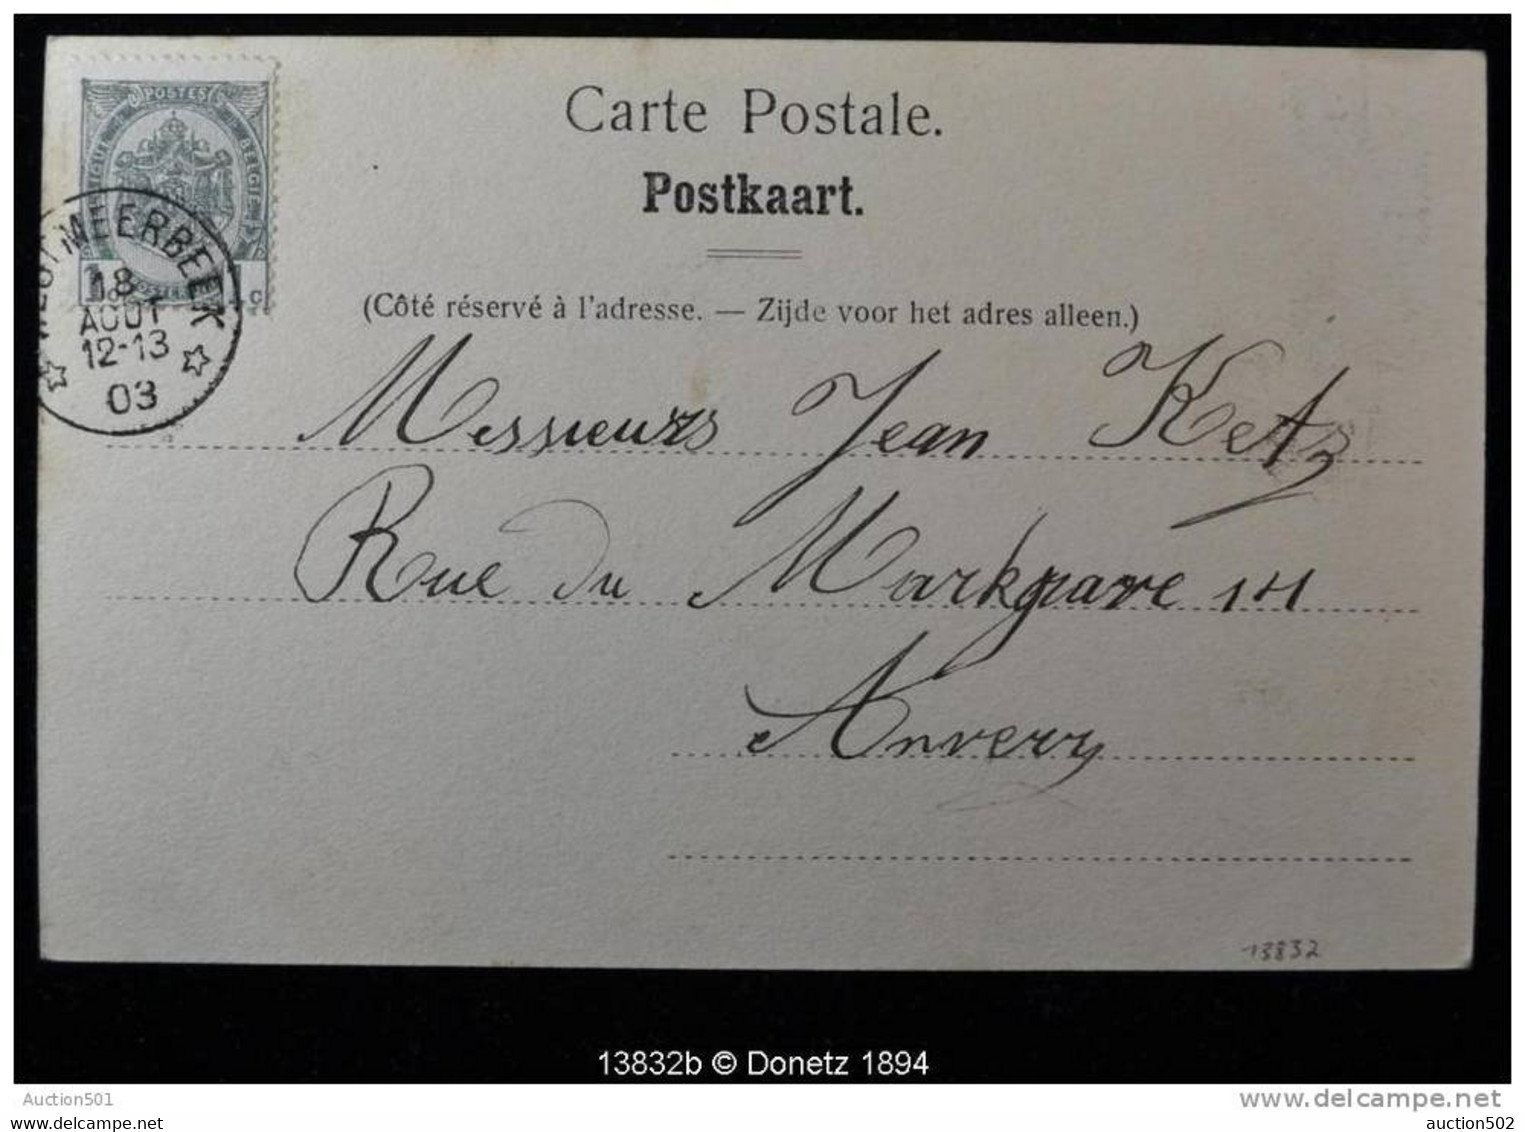 Carte Postale.
Postkaart.
(Côté réservé à l'adresse. — Zijde voor het adres alleen.)
POSTES
BELGIE
WESTMEERBEEK
18
AOUT
12-13
03
Messieurs Jean Ketz
Rue du Markgrave 14
Anvers
13832
13832b © Donetz 1894
Auction501
www.delcampe.net
www.delcampe.net
auction502